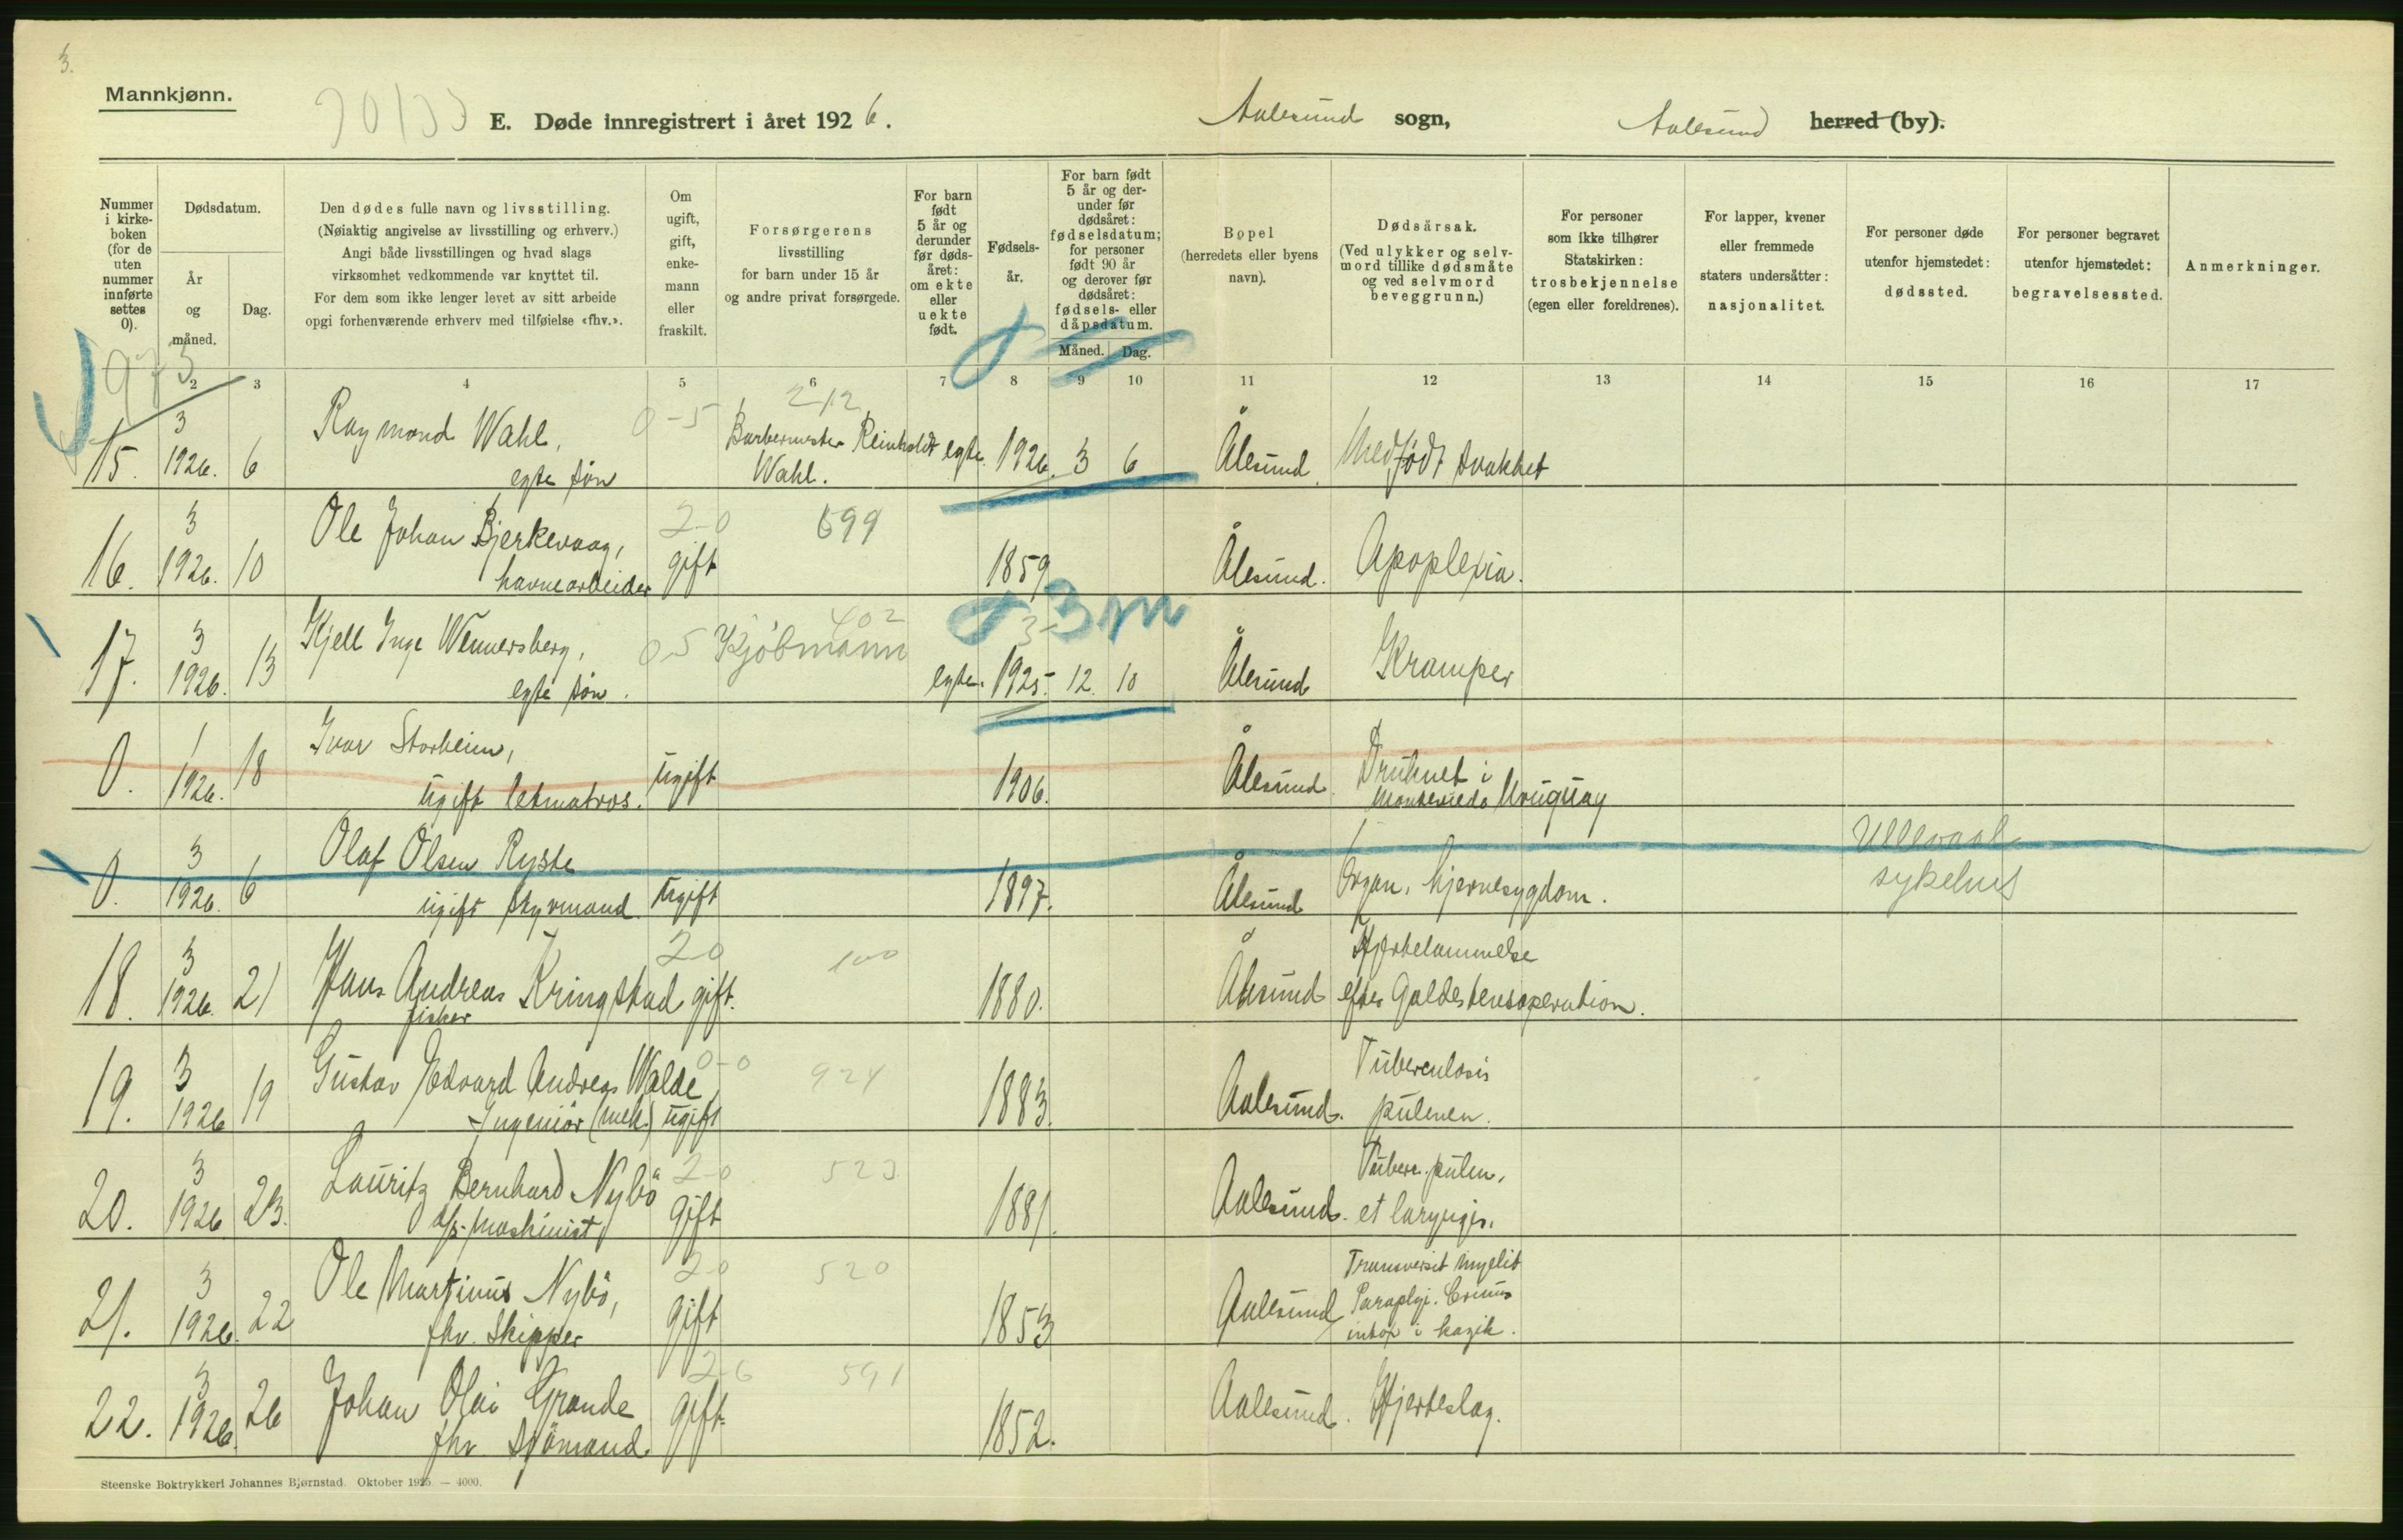 3.
Mannkjønn.
E. Døde innregistrert i året 1926.
Aalesund sogn,
Aalesund herred (by).
Nummer i kirkeboken (for de uten nummer innførte settes 0).
Dødsdatum.
År og måned.
Dag.
Den dødes fulle navn og livsstilling.
(Nøiaktig angivelse av livsstilling og erhverv.)
Angi både livsstillingen og hvad slags
virksomhet vedkommende var knyttet til.
For dem som ikke lenger levet av sitt arbeide
opgi forhenværende erhverv med tilføielse «fhv.».
Om ugift, gift, enkemann eller fraskilt.
Forsørgerens
livsstilling
for barn under 15 år
og andre privat forsørgede.
For barn født 5 år og derunder før dødsåret: om ekte eller uekte født.
Fødselsår.
For barn født 5 år og derunder før dødsåret: fødselsdatum; for personer født 90 år og derover før dødsåret: fødsels- eller dåpsdatum.
Måned. Dag.
Bopel
(herredets eller byens
navn).
Dødsårsak.
(Ved ulykker og selvmord tillike dødsmåte og ved selvmord beveggrunn.)
For personer
som ikke tilhører
Statskirken:
trosbekjennelse
(egen eller foreldrenes).
For lapper, kvener
eller fremmede
staters undersåtter:
nasjonalitet.
For personer døde
utenfor hjemstedet:
dødssted.
For personer begravet
utenfor hjemstedet:
begravelsessted.
Anmerkninger.
973
2 3 4 5 6 7 8 9 10 11 12 13 14 15 16 17
15. 3 1926. 6 Raymond Wahl, egte søn 0-5 212 Barbermester Reinholdt Wahl. egte. 1926. 3 6 Ålesund. Medfødt svakhet
16. 3 1926. 10 Ole Johan Bjerkevaag, havnearbeider 2-0 gift 699 1859 Ålesund. Apoplexia.
17. 3 1926. 13 Kjell Inge Wennersberg, egte søn. 0-5 402 Kjöbmann egte. 1925. 12. 10 3 3 m Ålesund Kramper
0. 1 1926. 18 Ivar Storheim, ugift letmatros. ugift 1906. Ålesund. Druknet i Montevideo Uruguay
0. 3 1926. 6 Olaf Olsen Ryste ugift styrmand. ugift 1897. Ålesund Organ. hjernesygdom. Ullevaal sykehus
18. 3 1926. 21 Hans Andreas Kringstad fisker 2-0 gift. 100 1880. Ålesund Hjertelammelse efter Galdestensoperation.
19. 3 1926 19 Gustav Edvard Andreas Walde, Ingeniör (mek.) 0-0 ugift 924 1883. Aalesund. Tuberculosis pulmen.
20. 3 1926 23. Lauritz Bernhard Nybö d/s. maskinist 2-0 gift 523 1881. Aalesund. Tuberc. pulm. et laryngis.
21. 3 1926. 22 Ole Martinus Nybö, fhv. Skipper 2-0 gift 520 1853 Aalesund Transversit myelit Paraplgi.
22. 3 1926. 26 Johan Olai Grande fhv sjömand. 2-6 gift. 591 1852. Aalesund. Hjerteslag.
Steenske Boktrykkeri Johannes Bjørnstad. Oktober 1925. — 4000.